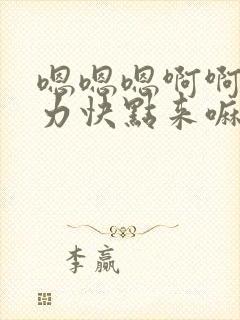 嗯嗯嗯啊啊
力快點来嘛
李赢